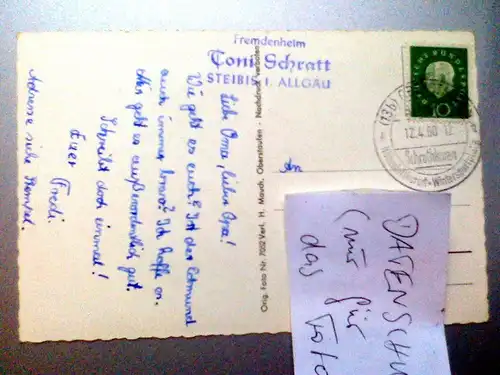 Fremdenheim
Toni Schratt
STEIBIS i. ALLGÄU
Liebe Oma, lieber Opa!
Wie geht es euch? Ist der Edmund
auch immer brav? Ich hoffe es.
Mir geht es außerordentlich gut.
Schreibt doch einmal!
Euer Fredi.
Adresse siehe Stempel.
Orig. Foto Nr. 7002 Verl. H. Mauch, Oberstaufen - Nachdruck verboten
An
DEUTSCHE BUNDESPOST
10
(13b)
12.4.60.12
Schrothkuren
Wintersportplatz
DATENSCHU
(nur für
das Foto